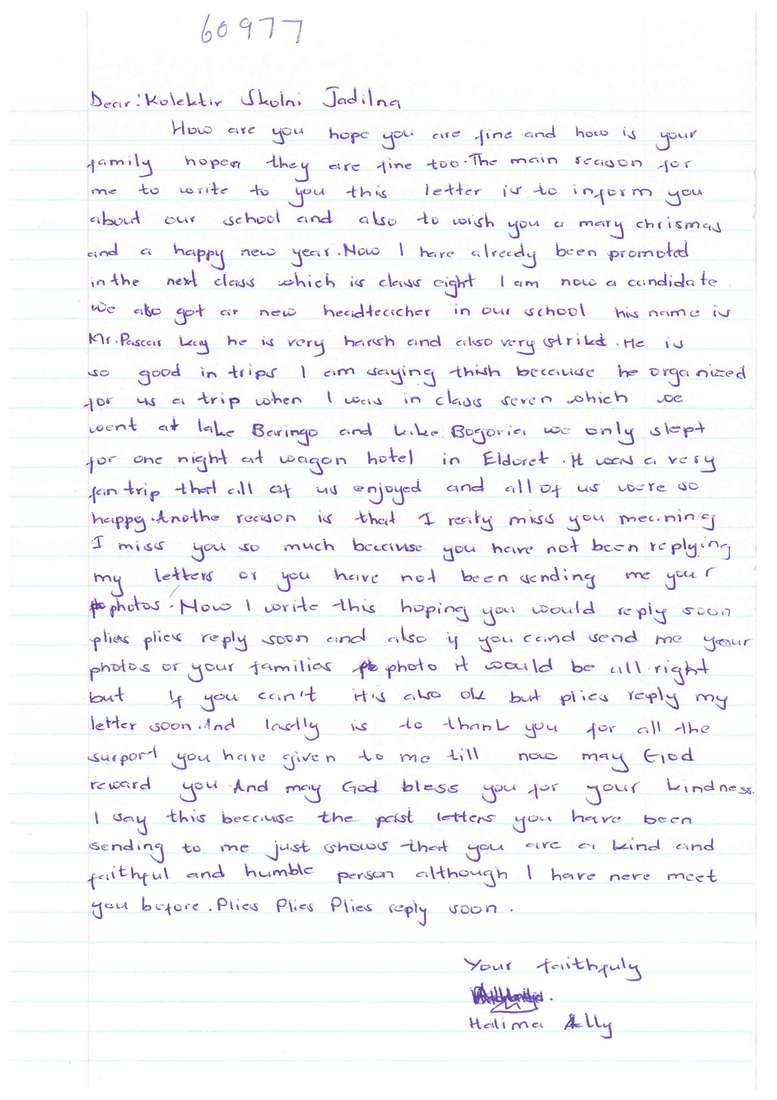 60977
Dear: Kolektiv Skolni Jadilna
How are you hope you are fine and how is your
family hopen they are fine too. The main reason for
me to write to you this letter is to inform you
about our school and also to wish you a mary chrismas
and a happy new year. Now I have already been promoted
in the next class which is class eight I am now a candidate
we also got ar new headteacher in our school his name is
Mr. Pascar he is very harsh and also very strikt. He is
so good in trips I am saying thish because he organized
for us a trip when I was in class seven which we
went at lake Baringo and Like Bogoria we only slept
for one night at wagon hotel in Eldoret. It was a very
fan trip that all of us enjoyed and all of us were so
happy. Anothe reason is that I realy miss you meaning
I miss you so much because you have not been replying
my letters or you have not been sending me your
photos. Now I write this hoping you would reply soon
plies plies reply soon and also if you cand send me your
photos or your familias photo it would be all right
but If you can't itis also ok but plies reply my
letter soon. And lastly is to thank you for all the
surport you have given to me till now may God
reward you. And may God bless you for your kindness.
I say this because the past letters you have been
sending to me just shows that you are a kind and
faithful and humble person although I have nere meet
you before. Plies Plies Plies reply soon.
Your faithfuly
Halima Ally